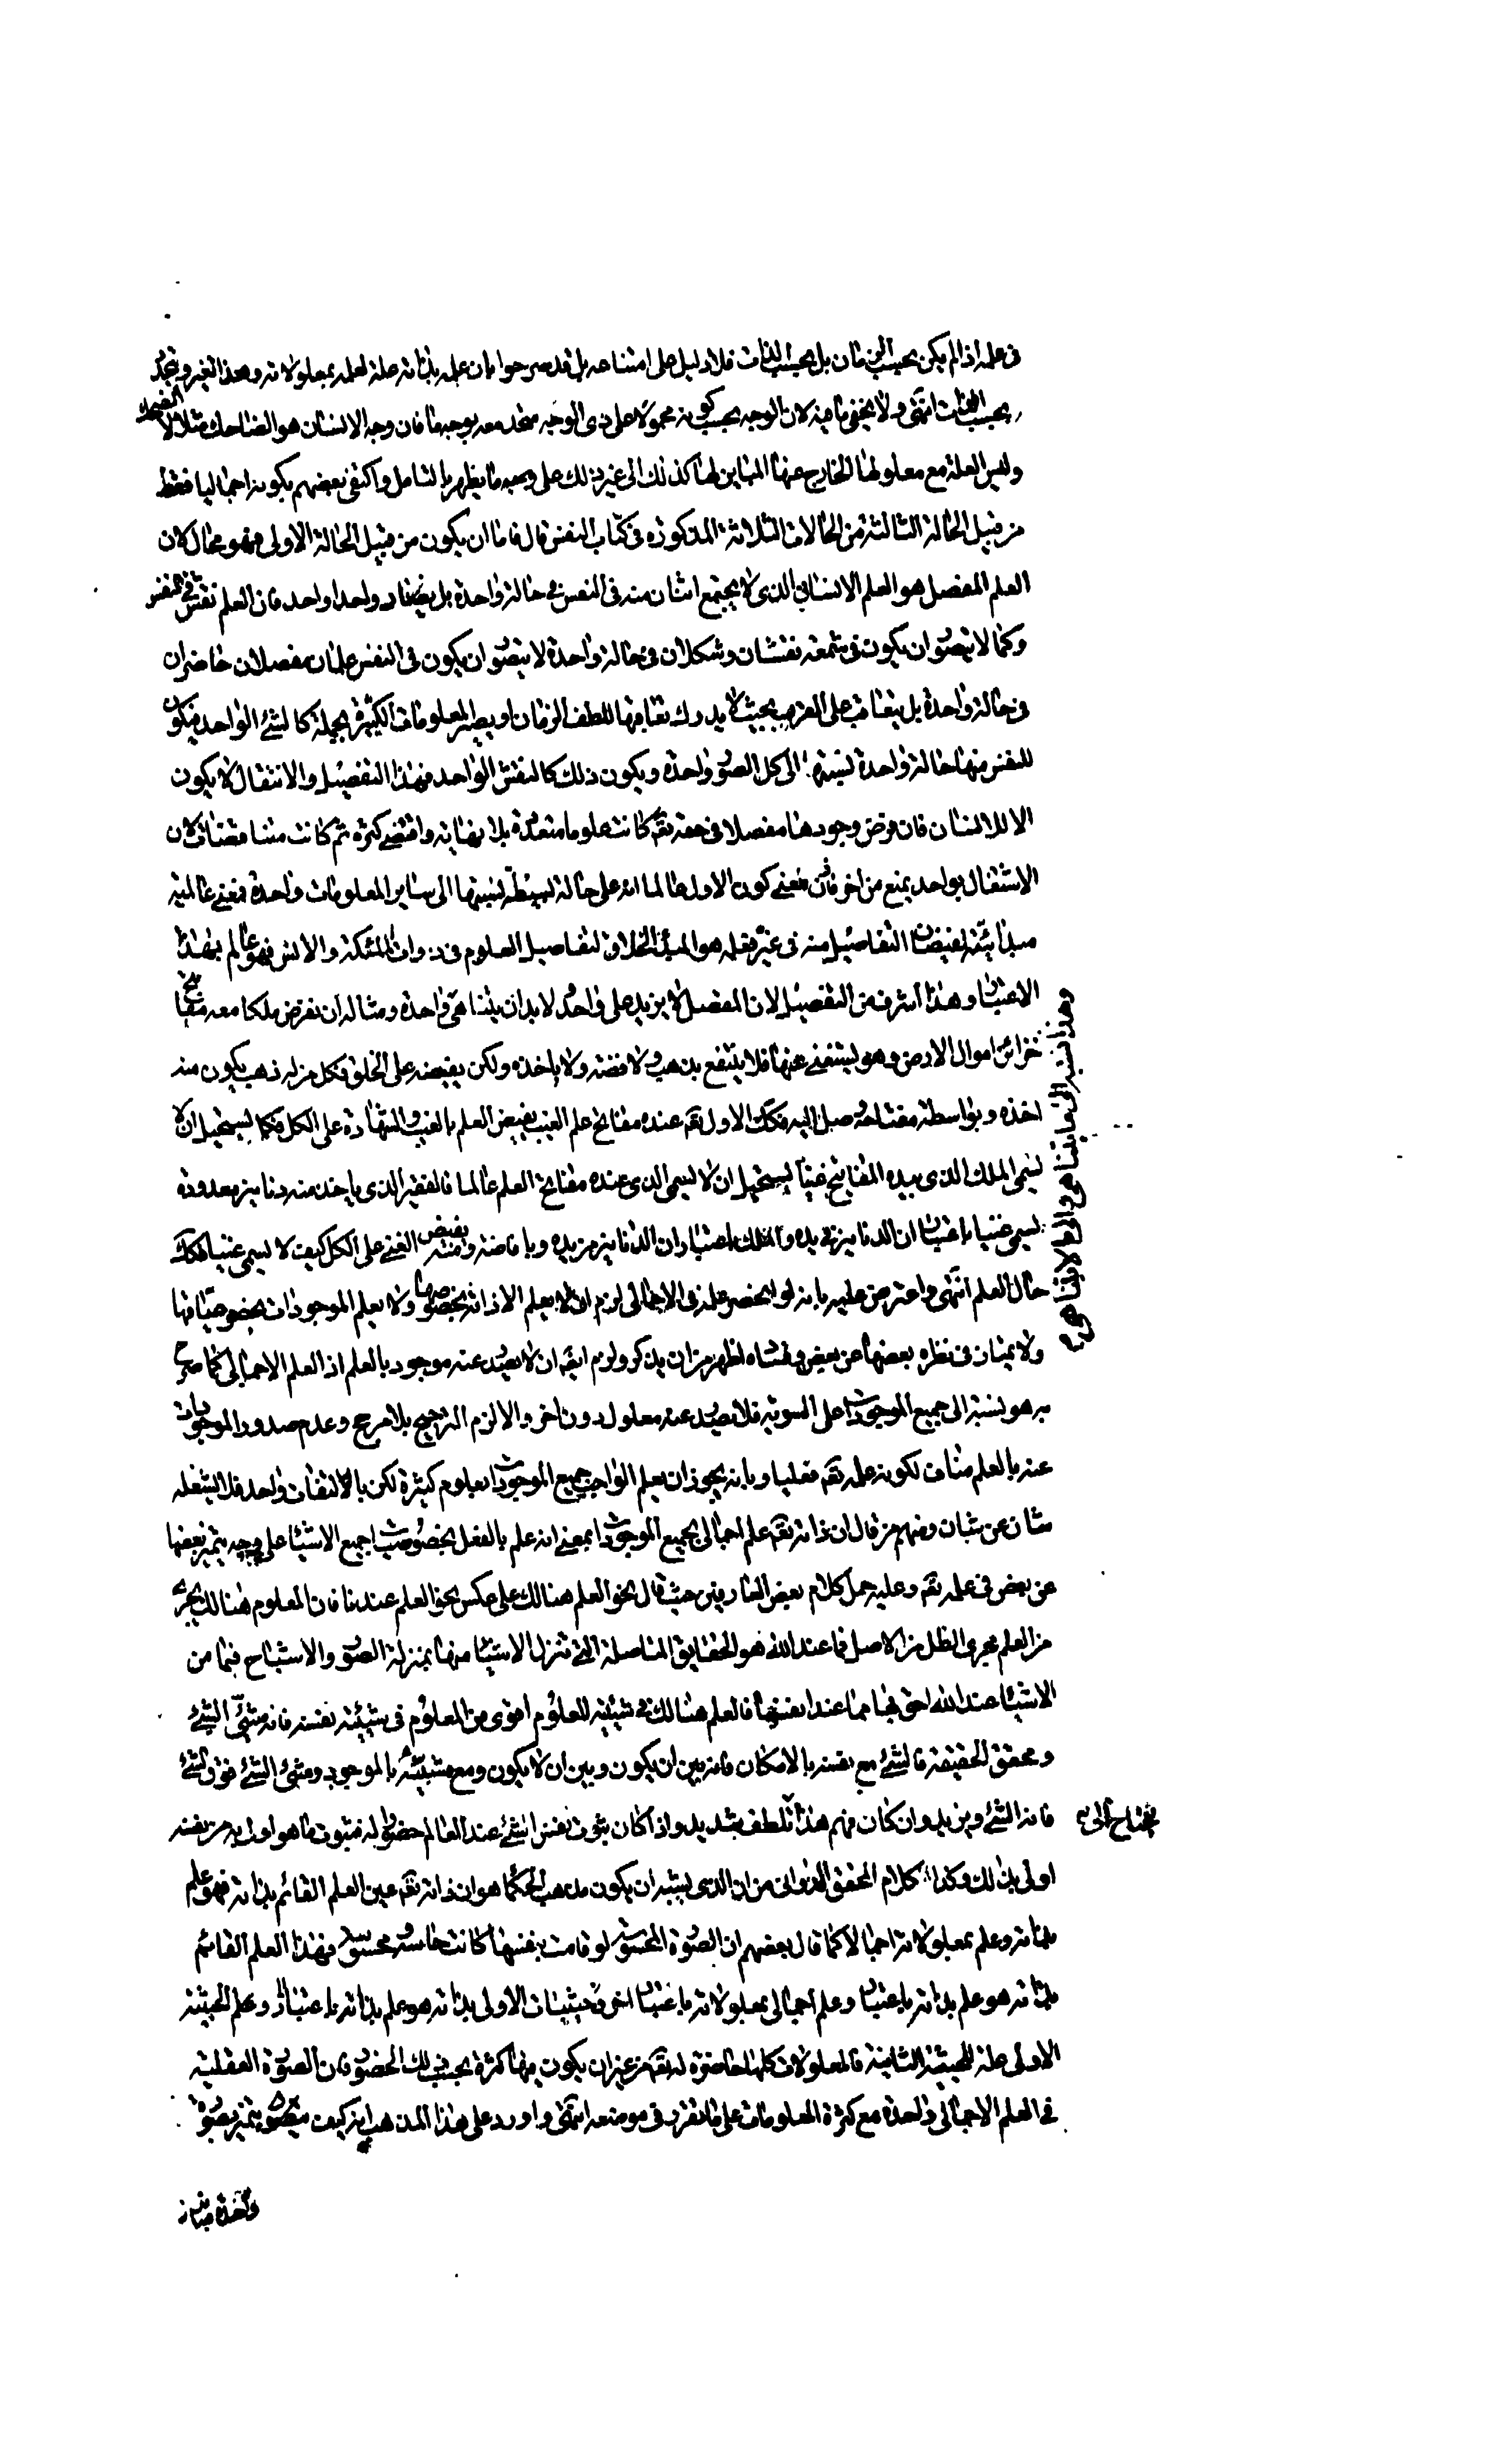 في علمه اذا لم يكن بحسب الزمان بل بحسب الذات فلا دليل على امتناعه بل قد صرحوا بان علمه بذاته علة لعلمه بمعلولاته وهذا تغير وتجدد
بحسب الذات انتهى ولا يخفى ما فيه لان الوجه بحسب كونه محمولا على ذي الوجه متحد معه بوجه ما فان وجه الانسان هو الضاحك مثلا لا الضحك
وليس العلة مع معلولها الخارج عنها المباين لها كذلك الى غير ذلك على وجه ما يظهر بالتامل واكتفى بعضهم بكونه اجماليا فقط
من قبيل الحالة الثالثة من الحالات الثلاثة المذكورة في كتاب النفس قال فاما ان يكون من قبيل الحالة الاولى فهو محال لان
العلم المفصل هو العلم الانساني الذي لا يجتمع اثنان منه في النفس في حالة واحدة بل يضاد واحدا واحد فان العلم نقش في النفس
وكما لا يتصور ان يكون في شمعة نقشان وشكلان في حالة واحدة لا يتصور ان يكون في النفس علمان مفصلان حاضران
في حالة واحدة بل يتعاقب على القرب بحيث لا يدرك تعاقبها للطف الزمان او يصير المعلومات الكثيرة بجملة كالشئ الواحد فيكون
للنفس منها حالة واحدة نسبتها الى كل الصور واحدة ويكون ذلك كالنقش الواحد فهذا التفصيل والانتقال لا يكون
الا للانسان فان فرض وجودها مفصلا في حقه تعم كانت علوما متعددة بلا نهاية واقتضى كثرة ثم كانت متناقضا لان
الاشتغال بواحد يمنع من اخر فاذن فمعنى كون الاول عالما انه على حالة بسيطة نسبتها الى ساير المعلومات واحدة فمعنى عالميته
مبدئية لفيضان التفاصيل منه في غيره فعلمه هو المبدأ الخلاق لتفاصيل العلوم في ذوات الملئكة والانس فهو عالم بهذا
الاعتبار وهذا اشرف من التفصيل لان المفصل لا يزيد على واحد ولا بد ان يتناهى
وهذا نسبته الى ما يتناهى والى ما لا يتناهى واحدة ومثاله ان نفرض ملكا معه مفاتيح
خزائن اموال الارض وهو يستغنى عنها فلا ينتفع بذهب ولا فضة ولا ياخذه ولكن يفيضه على الخلق فكل من له ذهب يكون منه
اخذه وبواسطة مفتاحه وصل اليه فكك الاول تعم عنده مفاتح علم الغيب يفيض العلم بالغيب والشهادة على الكل فكما يستحيل ان لا
يسمى الملك الذي بيده المفاتيح غنيا يستحيل ان لا يسمى الذي عنده مفاتح العلم عالما فالفقير الذي ياخذ منه دنانير معدودة
يسمى غنيا باعتبار ان الدنانير في يده والملك باعتبار ان الدنانير من يده وبافاضته ومنه يفيض الغنى على الكل كيف لا يسمى غنيا فكك
حال العلم انتهى واعترض عليه بانه لو انحصر علمه في الاجمالي لزم ان لا يعلم الا ذاته بخصوصها ولا يعلم الموجودات بخصوصياتها
ولا يمتاز في نظره بعضها عن بعض وفساده اظهر من ان يذكر ولزم ايضا ان لا يصدر عنه موجود بالعلم اذ العلم الاجمالي كما صرح
به هو نسبته الى جميع الموجودات على السوية فلا يصدر عنه معلول دون اخر والا لزم الترجيح بلا مرجح وعدم صدور الموجودات
عنه بالعلم مناف لكون علمه تعم فعليا وبانه يجوز ان يعلم الواجب جميع الموجودات بعلوم كثيرة لكن بالالتفات واحد فلا يشغله
شان عن شان ومنهم من قال ان ذاته تعم علم اجمالي بجميع الموجودات بمعنى انه علم بالفعل بخصوصيات جميع الاشياء على وجه يتميز بعضها
عن بعض في علمه تعم وعليه حمل كلام بعض العارفين حيث قال نحو العلم هنالك على عكس نحو العلم عندنا فان المعلوم هنالك يجرى
من العلم مجرى الظل من الاصل فما عند الله هو الحقايق المتاصلة التي تنزل الاشياء منها بمنزلة الصور والاشباح فما من
الاشياء عند الله احق بها مما عند انفسها فالعلم هنالك في شيئية المعلوم اقوى من المعلوم في شيئية نفسه فانه مشيئ الشئ
ومحقق الحقيقة فالشئ مع نفسه بالامكان فانه بين ان يكون وبين ان لا يكون ومع مشيئه بالوجوب ومشيئ الشئ فوق الشئ
فانه الشئ ويزيد وان كان فهم هذا يحتاج الى تلطف شديد واذا كان ثبوت نفس الشئ عند العالم حضورا له فثبوت ما هو اولى به من نفسه
اولى بذلك وكذا كلام المحقق الدواني من ان الذي يشبه ان يكون مذهب الحكماء هو ان ذاته تعم عين العلم القائم بذاته فهو علم
بذاته وعلم بمعلولاته اجمالا كما قال بعضهم ان الصورة المحسوسة لو قامت بنفسها كانت حاسة ومحسوسة فهذا العلم القائم
بذاته هو علم بذاته باعتبار وعلم اجمالي بمعلولاته باعتبار اخر فحيثيات الاولى بذاته هو علم بذاته باعتبار وعلم الحيثية
الاولى علة للحيثية الثانية فالمعلولات كلها حاضرة له تعم من غير ان يكون فيها كثرة بحسب ذلك الحضور فان الصورة العقلية
في العلم الاجمالي واحدة مع كثرة المعلومات على ما تقرر في موضعه انتهى واورد على هذا المذهب انه كيف يتصور تميز بصورة
واحدة متباينة